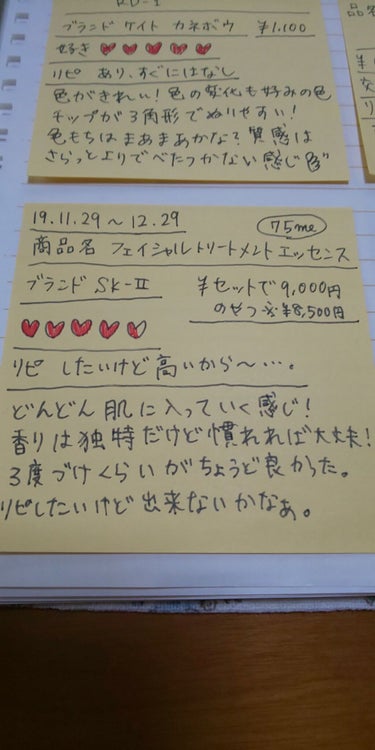 RD-1
ブランド ケイト カネボウ ¥1,100
好き
リピ あり、すぐにはなし
色がきれい！色の変化も好みの色
チップが3角形でぬりやすい！
色もちはまあまあかな？質感は
さらっとよりでべたつかない感じ
品名
19.11.29～12.29
75ml
商品名 フェイシャルトリートメントエッセンス
ブランド SK-Ⅱ
¥セットで9,000円
のやつ ¥8,500円
リピ したいけど高いから～…。
どんどん肌に入っていく感じ！
香りは独特だけど慣れれば大丈夫！
3度づけくらいがちょうど良かった。
リピしたいけど出来ないかなぁ。